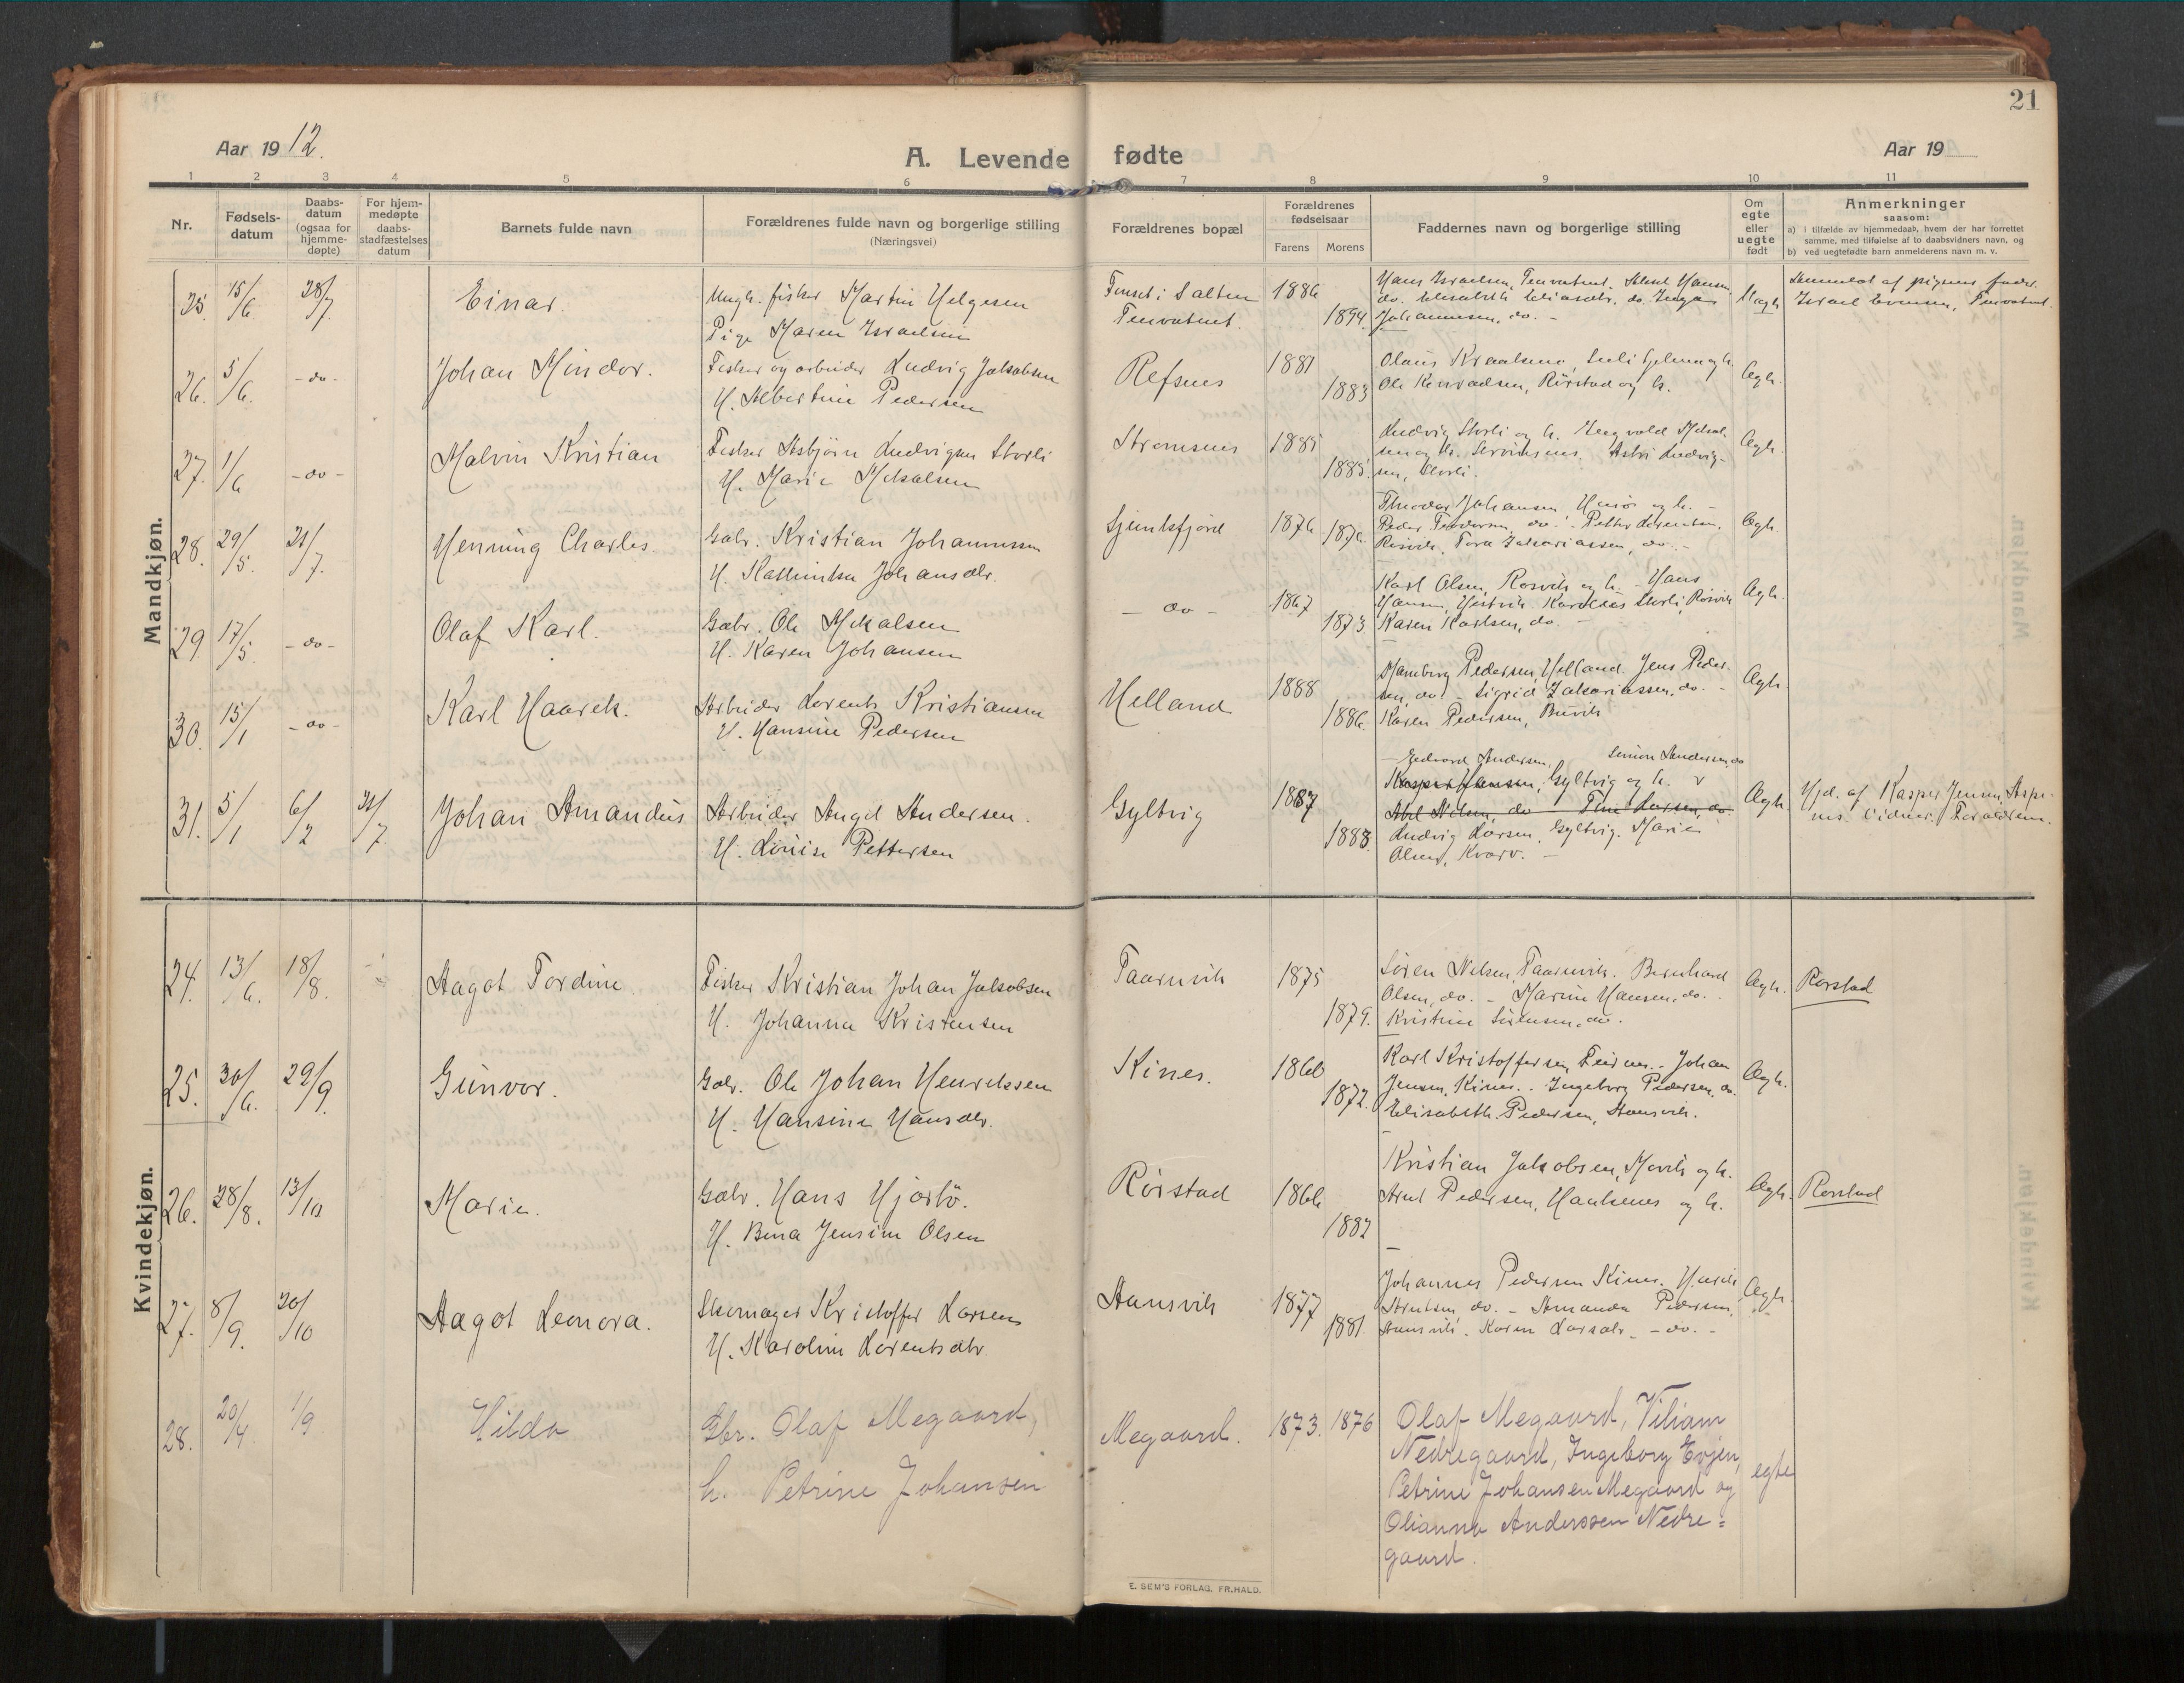 21
Aar 1912.
A. Levende fødte
Aar 19
1 2 3 4 5 6 7 8 9 10 11
Nr.
Fødsels-
datum
Daabs-
datum
(ogsaa for
hjemme-
døpte)
For hjem-
medøpte
daabs-
stadfæstelses
datum
Barnets fulde navn
Forældrenes fulde navn og borgerlige stilling
(Næringsvei)
Forældrenes bopæl
Forældrenes
fødselsaar
Farens Morens
Faddernes navn og borgerlige stilling
Om
egte
eller
uegte
født
Anmerkninger
saasom:
a) i tilfælde av hjemmedaab, hvem der har forrettet
samme, med tilføielse af to daabsvidners navn, og
b) ved uegtefødte barn anmelderens navn m. v.
Mandkjøn.
25. 15/6. 28/7. Einar. Ungk. fisker Martin Helgesen
Pige Maren Israelsen
Tenvatnet. 1886 1894
Hans Israelsen, Tenvatnet. Hansen
do. Elisabeth Eliasdtr. do. Inga
Johannesen, do. -
Uegte
Anmeldt af pigens fader
Israel Evensen, Tenvatnet.
26. 5/6. - do - Johan Mindor. Fisker og arbeider Ludvig Jakobsen
H. Albertine Pedersen
Refsnes 1881 1883
Olaus
Ole Konradsen, Rørstad og h.
Egte.
27. 1/6 - do - Malvin Kristian Fisker Asbjørn Ludvigsen Storli
H. Marie Mikalsen
Strømsnes 1885 1885
Ludvig Storli og h. Ingvald Mikal-
sen og h. Astri Ludvig-
sen, Storli.
Egte.
28. 29/5. 21/7. Henning Charles Gbr. Kristian Johannessen
H. Kathinka Johansdtr.
1876 1876.
Theodor Johansen og h. -
Peder do. - Petter Lorentsen,
Røsvik, Tora Zakariassen, do. -
Egte.
29. 17/5. - do - Olaf Karl. Gbr. Ole Mikalsen
H. Karen Johansen
- do - 1867 1873.
Karl Olsen, Røsvik og h. - Hans
Hansen, Storli, Røsvik
Karen Karlsen, do. -
Egte.
30. 15/1 - do - Karl Haarek. Arbeider Lorents Kristiansen
H. Hansine Pedersen
Helland 1888 1886.
Pedersen, Helland. Jens Peder-
sen, do. - Sigrid Zakariassen, do. -
Karen Pedersen, Buvik
Egte.
31. 5/1 6/2 21/7 Johan Amandus Arbeider Angel Andersen.
H. Lovise Pettersen
Gyltvig 1887 1888.
Edvard Andersen, Simon Andersen, do
Kasper Jensen, Gyltvig og h.
Abel Nilsen, do Tine Larsen, do.
Ludvig Larsen, Gyltvig. Marie
Olsen, Kvarv. -
Egte.
Hjd. af Kasper Jensen,
Vidner: Forældrene.
Kvindekjøn.
24. 13/6. 18/8. Aagot Tordine. Fisker Kristian Johan Jakobsen
H. Johanna Kristensen
Taarnvik 1875 1879.
Søren Nilsen, Taarnvik. Bernhard
Olsen, do. - Marine Hansen, do.
Kristine Sørensen, do.
Egte.
Rørstad
25. 30/6. 29/9. Gunvor. Gbr. Ole Johan Henriksen
H. Hansine Hansdtr.
Kines. 1860 1872.
Karl Kristoffersen, - Johan
Jensen, Kines. - Ingeborg Pedersen, do.
Elisabeth Pedersen, Stamsvik.
Egte.
26. 28/8. 13/10 Marie. Gbr. Hans Hjartø.
H. Bina Jensine Olsen
Rørstad 1866 1882
Kristian Jakobsen, Movik og h.
Arnt Pedersen, og h.
Egte.
Rørstad
27. 8/9. 20/10 Aagot Leonora. Skomager Kristoffer Larsen
H. Karoline Lorentsdtr
Stamsvik 1877 1881.
Johannes Pedersen Kines. Henrik
Arntsen do. - Amanda Pedersen,
Stamsvik. Karen Larsdtr. - do. -
Egte.
28. 20/4 1/9 Hilda Gbr. Olaf Megaard,
h. Petrine Johansen
Megaard. 1873. 1876
Olaf Megaard, Viliam
Nedregaard, Ingeborg Evjen,
Petrine Johansen Megaard og
Olianna Anderssen Nedre=
gaard.
egte
E. SEM'S FORLAG, FR.HALD.